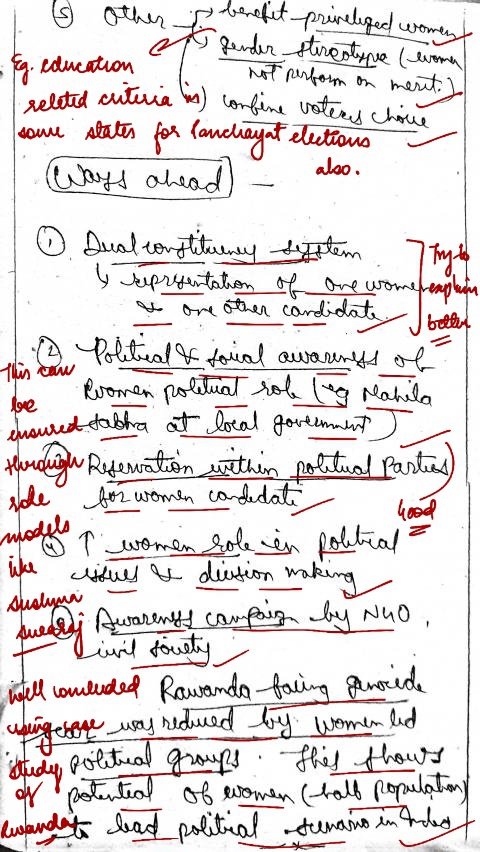 ⑤ Other → benefit privileged women
↳ gender stereotype (women
not perform on merit.)
↳ confine voters choice
Eg. education
related criteria in
some states for Panchayat elections
also.
Ways ahead —
① Dual constituency system
↳ representation of one women
& one other candidate.
Try to
explain
better
② Political & social awareness of
women political role (eg Mahila
sabha at local government)
③ Reservation within political Parties
for women candidate
Good
④ ↑ women role in political
issues & decision making
⑤ Awareness campaign by NGO,
civil society
This can
be
ensured
through
role
models
like
Sushma
Swaraj
Rawanda facing genocide
was reduced by women led
political groups. This shows
potential of women (half population)
to lead political scenario in India
Well concluded
using case
study
of
Rwanda